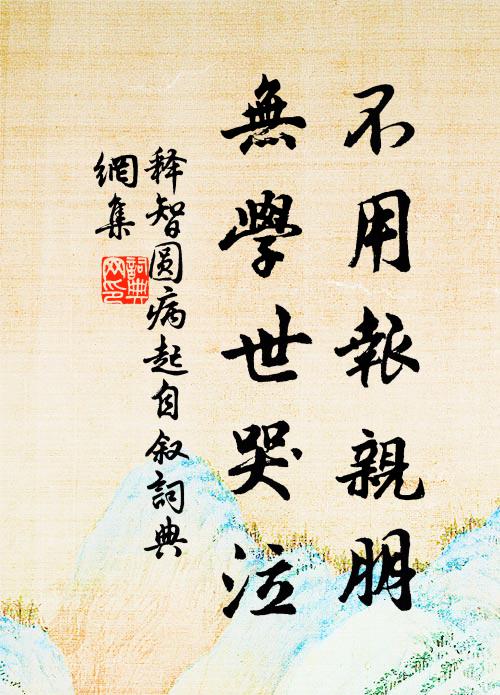 不用報親朋
無學世哭泣
释智圆病起自叙詞典
網集
詞典網印